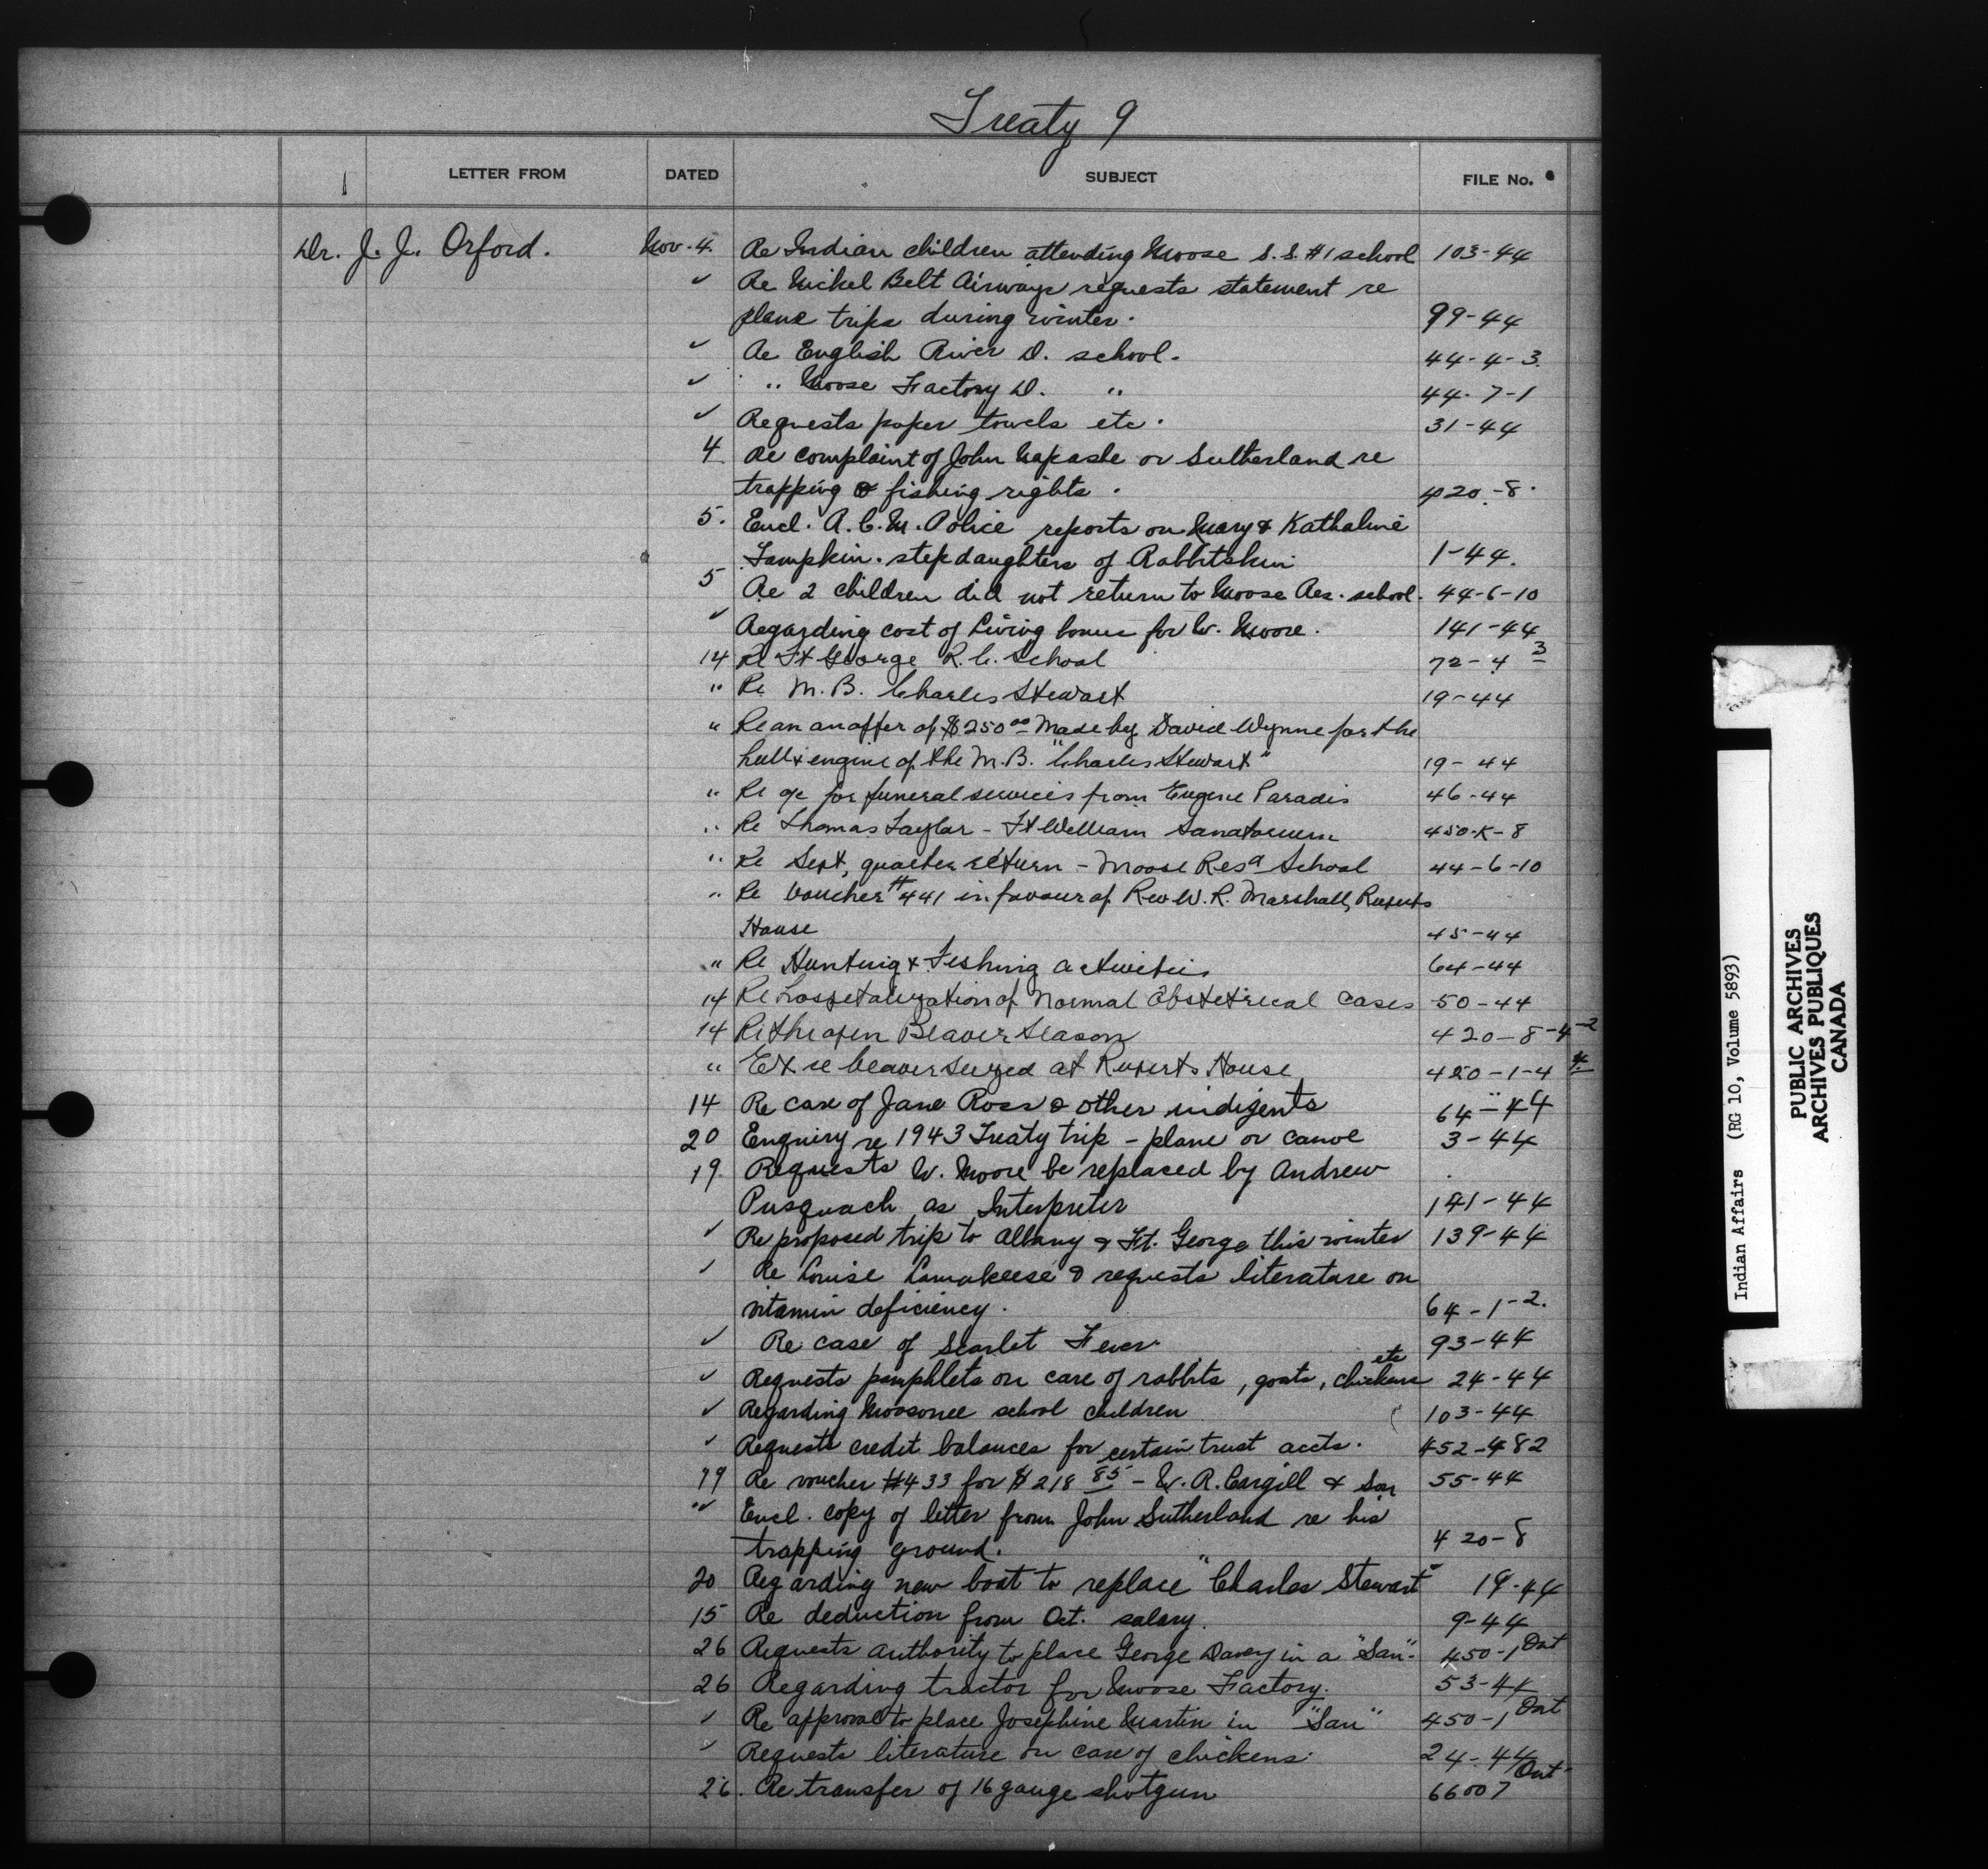 Treaty 9
1 LETTER FROM DATED SUBJECT FILE No.
Dr. J. J. Orford. Nov. 4. Re Indian children attending Moose S.S. #1 school 103-44
✓ Re Nickel Belt Airways requests statement re
plane trips during winter. 99-44
✓ Re English River D. school. 44-4-3.
✓ " Moose Factory D. " 44-7-1
✓ Requests paper towels etc. 31-44
4 Re complaint of John or Sutherland re
trapping & fishing rights. 420-8.
5. Encl. R.C.M. Police reports on Mary & Kathaline
stepdaughters of Rabbitskin 1-44.
5 Re 2 children did not return to Moose Res. school. 44-6-10
✓ Regarding cost of Living bonus for W. Moore. 141-44
14 Re Ft George R.C. School 72-4 3
" Re M.B. Charles Stewart 19-44
" Re an an offer of $250 00 Made by David Wynne for the
hull & engine of the M.B. "Charles Stewart" 19-44
" Re a/c for funeral services from Eugene Paradis 46-44
" Re Thomas Taylor - Ft William Sanatorium 450-K-8
" Re Sept, quarter return - Moose Resa School 44-6-10
" Re Voucher #441 in favour of Rev W. R. Marshall, Ruperts
House 45-44
" Re Hunting & Fishing activities 64-44
14 Re hospitalization of Normal Obstetrical Cases 50-44
14 Re the open Beaver Season 420-8-4-2
" Ext re beaver seized at Ruperts House 420-1-4 4
14 Re case of Jane Ross & other indigents 64-44
20 Enquiry re 1943 Treaty trip - plane or canoe 3-44
19. Requests W. Moore be replaced by Andrew
Pusquach as Interpreter 141-44
✓ Re proposed trip to Albany & Ft. George this winter 139-44
✓ Re Louise & requests literature on
vitamin deficiency. 64-1-2.
✓ Re case of Scarlet Fever 93-44
✓ Requests pamphlets on care of rabbits, goats, chickens etc 24-44
✓ Regarding Moosonee school children 103-44
✓ Requests credit balances for certain trust accts. 452-482
19 Re voucher #433 for $218 85 - W. R. Cargill & Son 55-44
"✓ Encl. copy of letter from John Sutherland re his
trapping ground. 420-8
20 Regarding new boat to replace "Charles Stewart" 19-44
15 Re deduction from Oct. salary. 9-44
26 Requests authority to place George Davey in a "San". 450-1 Ont
26 Regarding tractor for Moose Factory. 53-44
✓ Re approval to place Josephine Martin in "San" 450-1 Ont
✓ Requests literature on care of chickens. 24-44
26. Re transfer of 16 gauge shotgun 66007 Ont
Indian Affairs (RG 10, Volume 5893)
PUBLIC ARCHIVES
ARCHIVES PUBLIQUES
CANADA